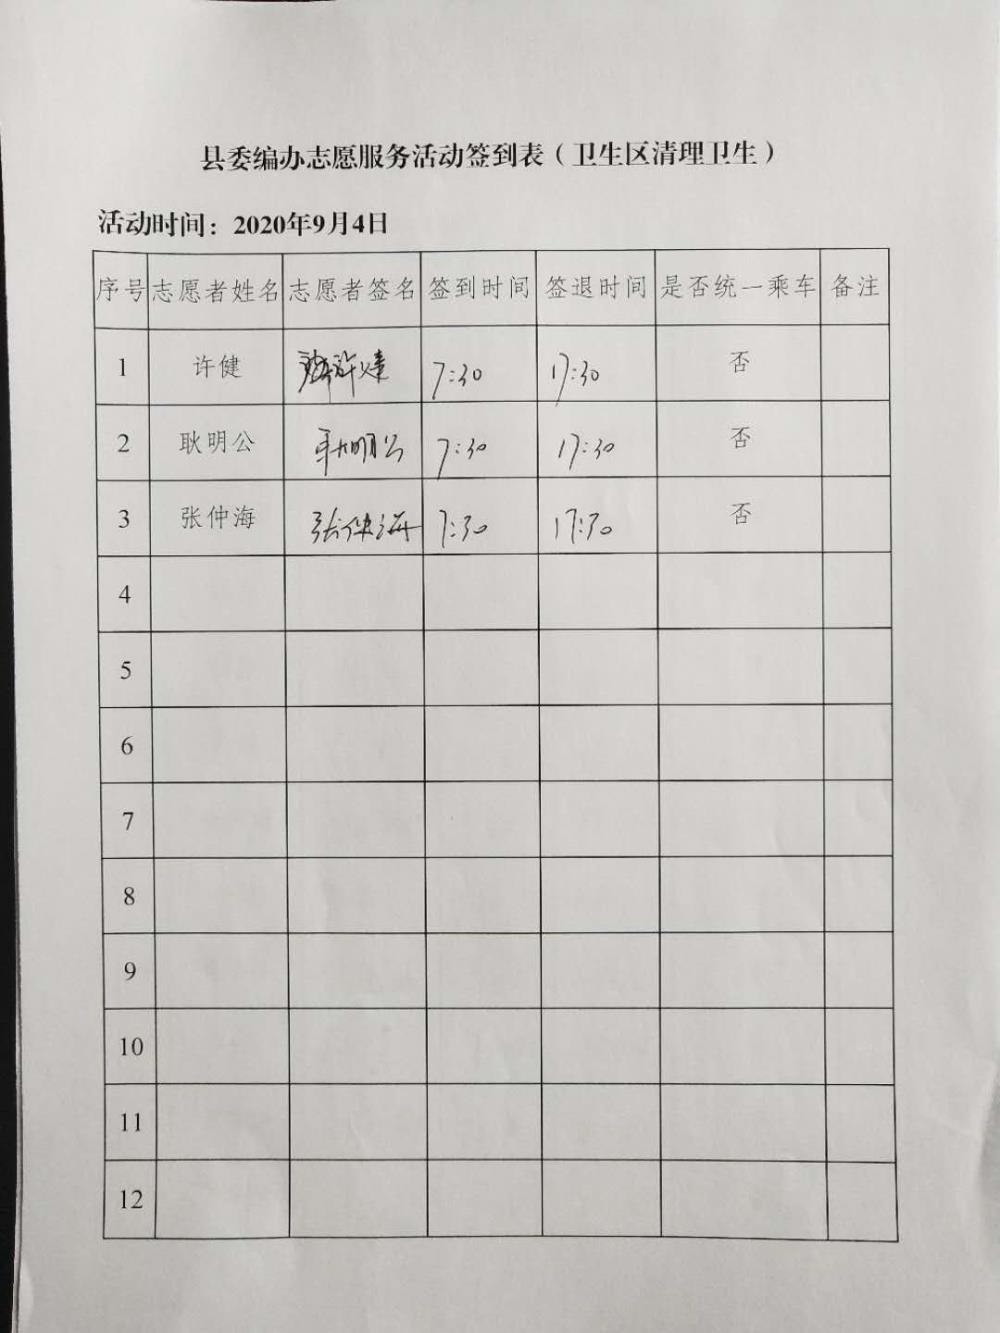 县委编办志愿服务活动签到表（卫生区清理卫生）
活动时间：2020年9月4日
序号 志愿者姓名 志愿者签名 签到时间 签退时间 是否统一乘车 备注
1 许健 许健 7:30 17:30 否
2 耿明公 耿明公 7:30 17:30 否
3 张仲海 张仲海 7:30 17:30 否
4
5
6
7
8
9
10
11
12